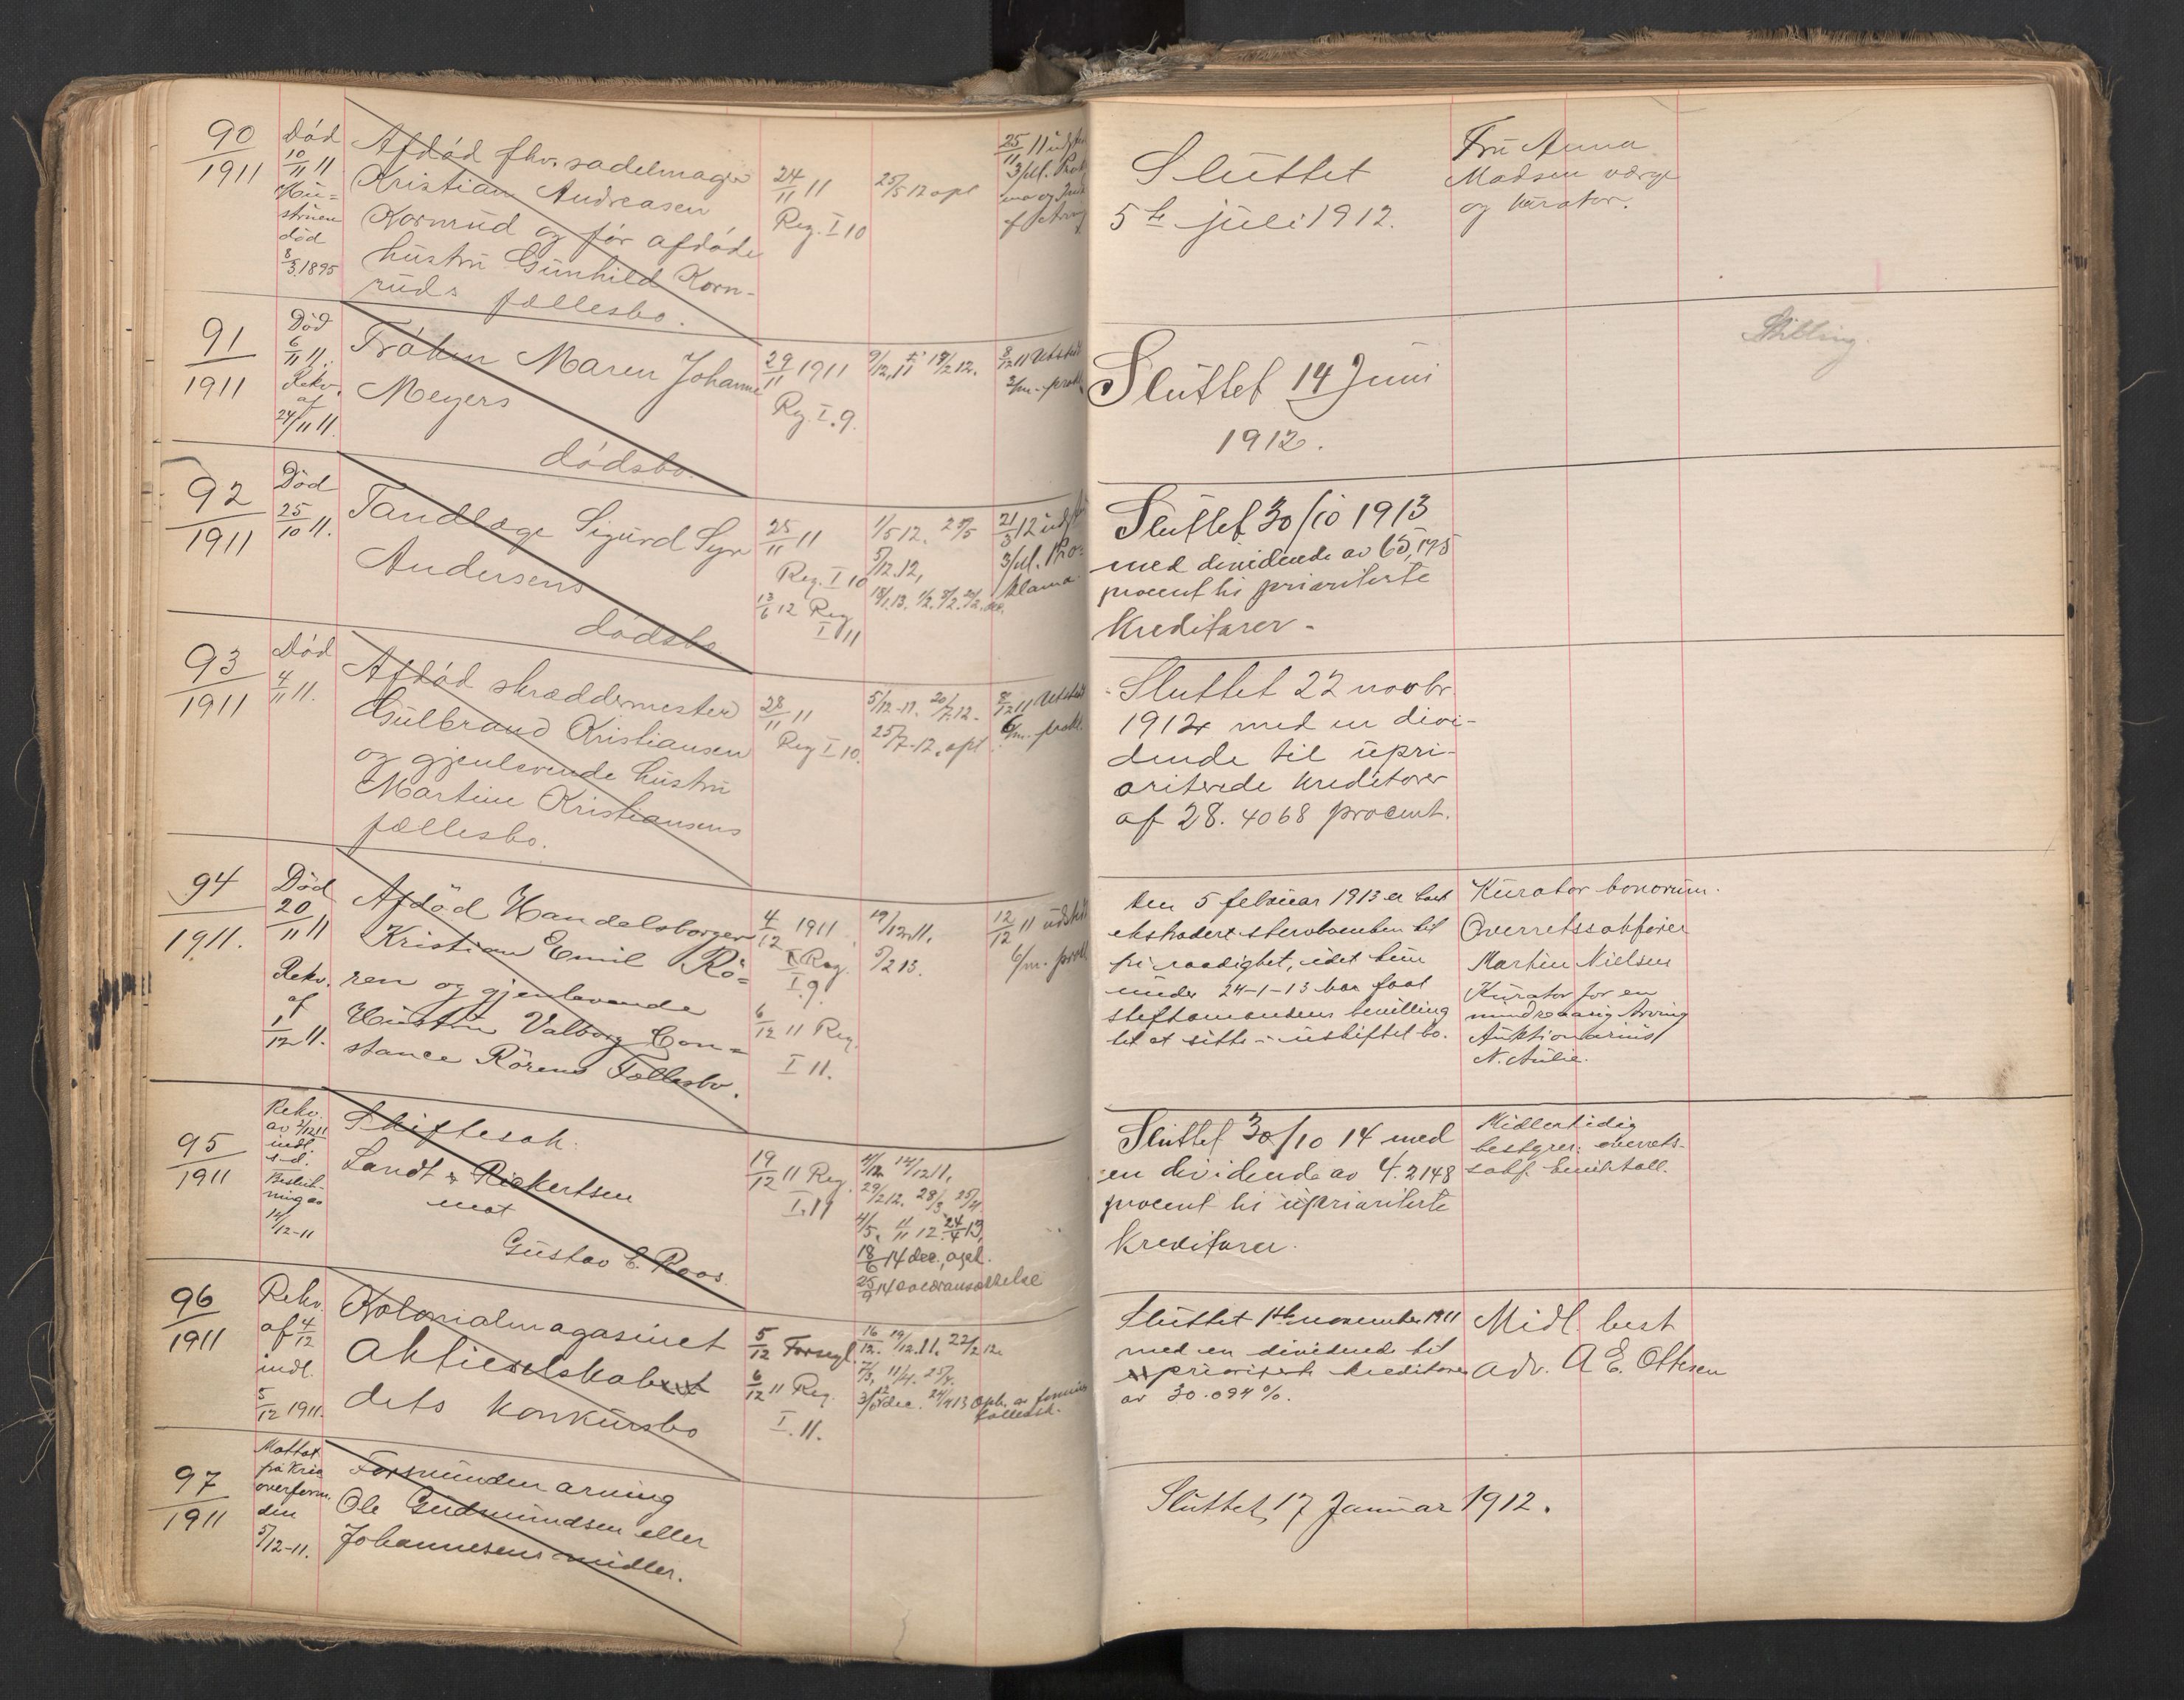 90
1911
Död
10/11 11
Hu=
struen
död
8/3 1895
Afdöd fhv. sadelmager
Kristian Andreasen
Kornrud og før afdöde
hustru Gunhild Korn-
ruds fællesbo.
24/11 11
Reg. I 10
25/5 12 opl
25/11 11
Sluttet
5te juli 1912.
Fru Anna
Madsen værge
og kurator.
91
1911
Död
6/11 11.
Rekv.
af
24/11 11.
Fröken Maren Johanne
Meyers
dödsbo.
29/11 1911
Reg. I. 9.
8/12 11 Utstedt
3/m. prokl.
Sluttet 14 Juni
1912.
92
1911
Död
25/10 11.
Tandlæge Sigurd Syr
Andersens
dödsbo.
25/11 11
Reg. I 10
13/6 12 Reg
I 11
1/5 12. 29/5
5/12 12,
21/3 12
3/M. Pro=
klama.
Sluttet 30/10 1913
med dividende av 65,195
procent til prioriterte
kreditorer -
93
1911
Död
4/11 11.
Afdöd skræddermester
Gulbrand Kristiansen
og gjenlevende hustru
Martine Kristiansens
fællesbo.
28/11 11
Reg I 10.
5/12-11. 20/7 12-
25/7-12. opl
8/12 11 Utstedt
6/m. prokl.
Sluttet 22 novbr.
1912 med en divi-
dende til upri-
oriterede kreditorer
af 28. 4068 procent.
94
1911.
Död
20/11 11
Rekv.
af
1/12 11.
Afdöd Handelsborger
Kristian Emil Rö=
ren og gjenlevende
Hustru Valborg Con=
stance Rörens Fællesbo.
4/12 1911
Reg.
I. 9.
6/12 11 Reg.
I 11.
19/12 11.
5/2 13.
12/12 11 udstedt
6/m. prokl
Den 5 februar 1913 er boet
ekstradert stervboenken til
fri raadighet, idet hun
under 24-1-13 har faat
stiftamandens bevilling
til at sitte i uskiftet bo.
Kurator bonorum.
Overretssakfører
Martin Nielsen
Kurator for en
mindreaarig Arving
Auktionarius
N. Aulie.
95
1911
Rekv.
av 2/12 11
indl.
s.d.
Beslut-
ning av
14/12-11
Skiftesak.
Landt & Riekertsen
mot
Gustav E. Roos.
19/12 11 Reg.
I. 11
4/12 14/12 11,
29/2 12. 28/3 25/4
4/5, 4/11 12. 24/4 13,
18/6 14 dec., opl.
Sluttet 30/10 14 med
en dividende av 4.2148
procent til uprioriterte
kreditorer.
Midlertidig
bestyrer: overrets-
sakf.
96
1911
Rekv.
af 4/12
indl.
5/12 1911.
Kolonialmagasinet
Aktieselskabet
dets konkursbo
5/12 Forsegl.
6/12 11 Reg.
I. 11.
16/12. 19/12 11. 22/2 12.
7/3, 11/4. 25/4.
Sluttet 1ste november 1911
med en dividende til
uprioriterte kreditorer
av 30.094 %.
Midl. best
adv. A E. Ottesen
97
1911
Mottat
fra Kria
overform.
den
5/12-11.
Forsvunden arving
Ole Gudmundsen eller
Johannesens midler.
Sluttet, 17 Januar 1912.